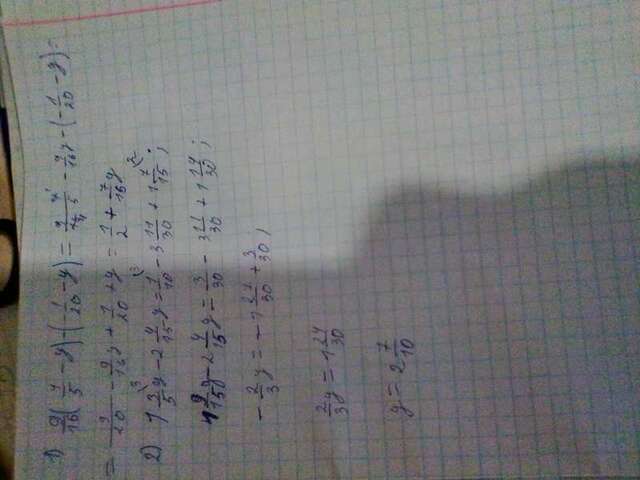 1) 9/16(4/5 - y) - (-1/20 - y) = 9/16 4/5 - 9/16y - (-1/20 - y) =
= 9/20 - 9/16y + 1/20 + y = 1/2 + 7/16y
2) 1 3/5y - 2 4/15y = 1/10 - 3 11/30 + 1 7/15;
1 9/15y - 2 4/15y = 3/30 - 3 11/30 + 1 14/30;
- 2/3y = - 1 27/30 + 3/30;
2/3y = 1 24/30
y = 2 7/10